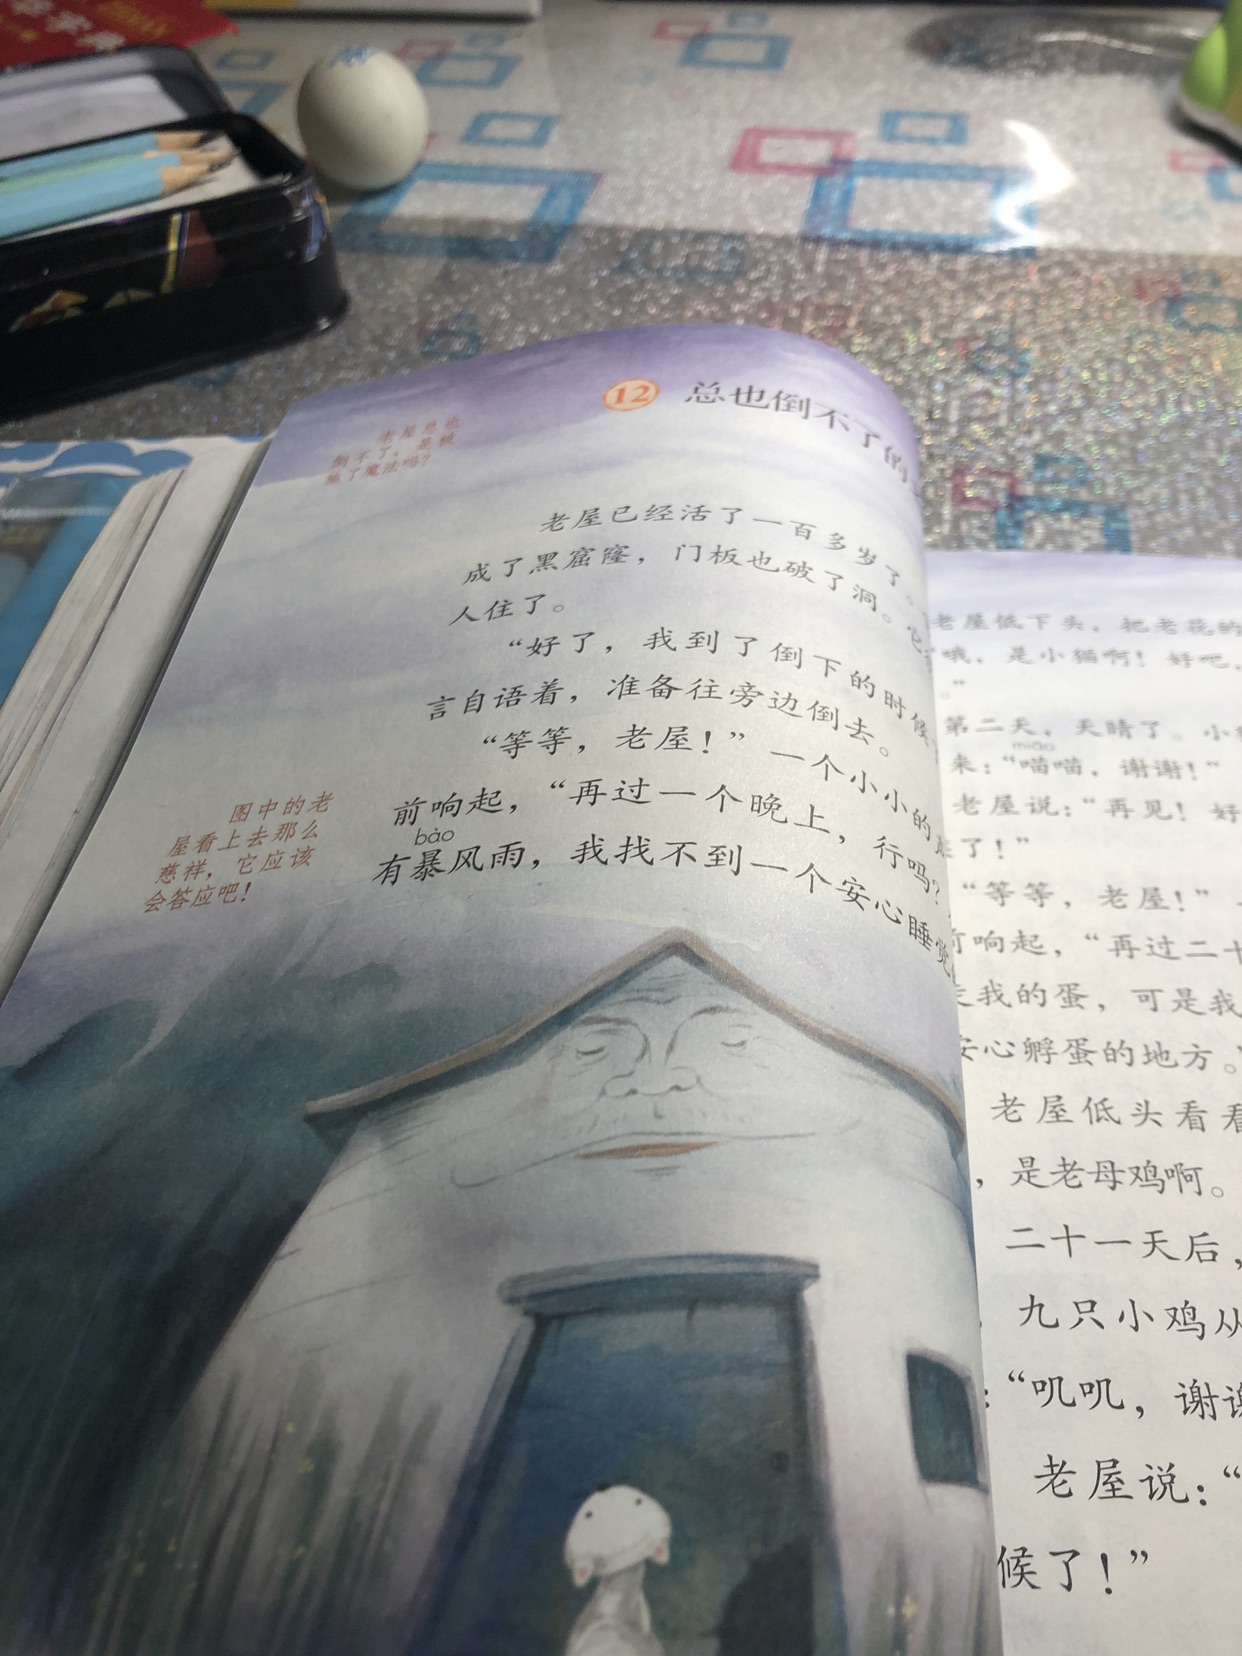 12 总也倒不了的
老屋总也
倒不了，是被
施了魔法吗？
老屋已经活了一百多岁了
成了黑窟窿，门板也破了洞。它
人住了。
“好了，我到了倒下的时候
言自语着，准备往旁边倒去。
“等等，老屋！”一个小小的
前响起，“再过一个晚上，行吗？
bào
有暴风雨，我找不到一个安心睡觉
图中的老
屋看上去那么
慈祥，它应该
会答应吧！
老屋低下头，把老花的
“哦，是小猫啊！好吧，
。”
第二天，天晴了。小
miāo
来：“喵喵，谢谢！”
老屋说：“再见！好
了！”
“等等，老屋！”
前响起，“再过二十
走我的蛋，可是我
安心孵蛋的地方。
老屋低头看看
，是老母鸡啊。
二十一天后，
九只小鸡从
：“叽叽，谢谢
老屋说：“
候了！”